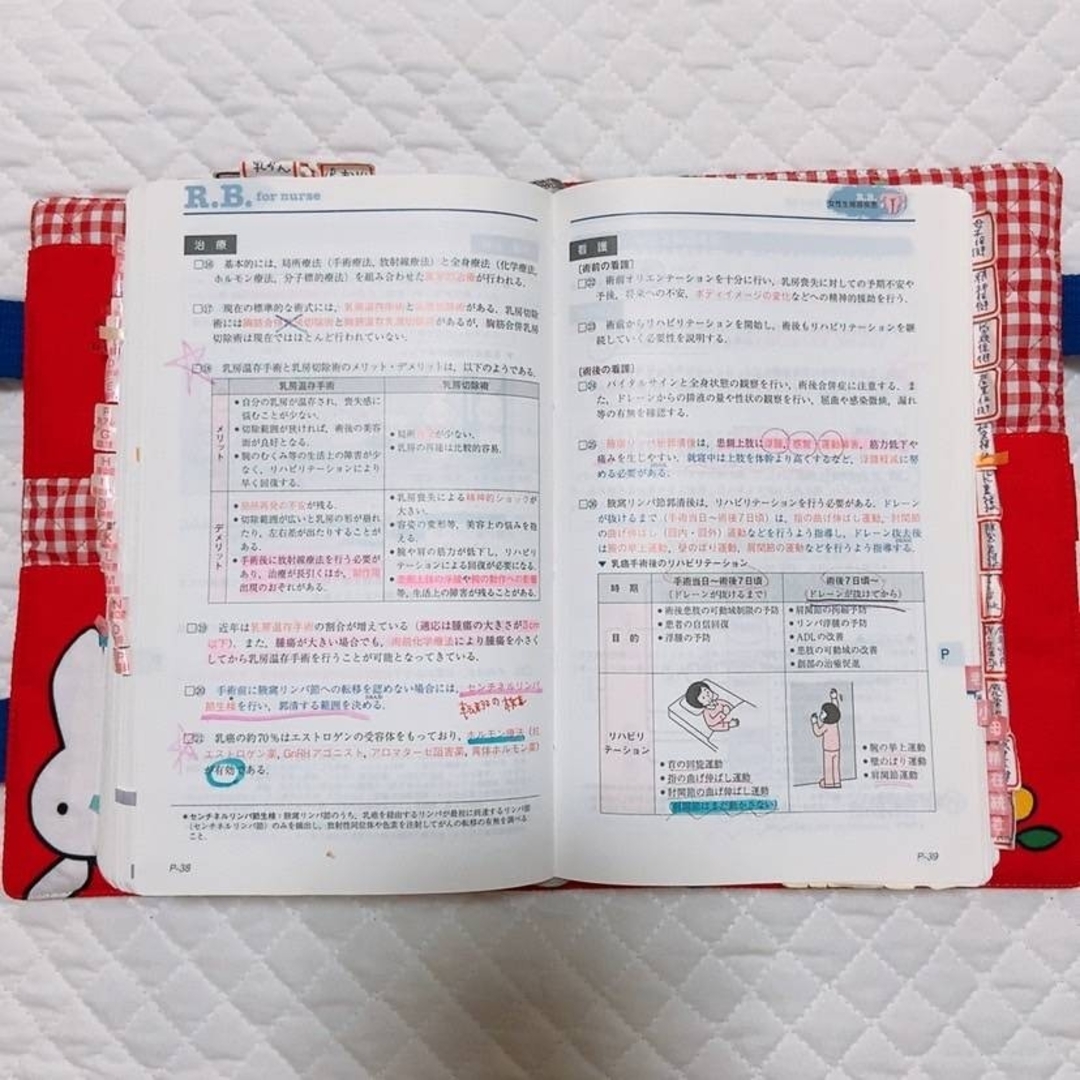 乳がん
R.B. for nurse
治 療
基本的には、局所療法（手術療法、放射線療法）と全身療法（化学療法、
ホルモン療法、分子標的療法）を組み合わせた集学的治療が行われる。
現在の標準的な術式には、乳房温存手術と乳房切除術がある。乳房切除
術には胸筋合併乳房切除術と胸筋温存乳房切除術があるが、胸筋合併乳房
切除術は現在ではほとんど行われていない。
乳房温存手術と乳房切除術のメリット・デメリットは、以下のようである。
乳房温存手術 乳房切除術
メリット
・自分の乳房が温存され、喪失感に
悩むことが少ない。
・切除範囲が狭ければ、術後の美容
面が良好となる。
・腕のむくみ等の生活上の障害が少
なく、リハビリテーションにより
早く回復する。
・局所再発が少ない。
・乳房の再建は比較的容易。
デメリット
・局所再発の不安が残る。
・切除範囲が広いと乳房の形が崩れ
たり、左右差が出たりすることが
ある。
・手術後に放射線療法を行う必要が
あり、治療が長引くほか、副作用
出現のおそれがある。
・乳房喪失による精神的ショックが
大きい。
・容姿の変形等、美容上の悩みを抱
える。
・腕や肩の筋力が低下し、リハビリ
テーションによる回復が必要になる。
・患側上肢の浮腫や腕の動作への影響
等、生活上の障害が残ることがある。
近年は乳房温存手術の割合が増えている（適応は腫瘍の大きさが3cm
以下）。また、腫瘍が大きい場合でも、術前化学療法により腫瘍を小さく
してから乳房温存手術を行うことが可能となってきている。
手術前に腋窩リンパ節への転移を認めない場合には、センチネルリンパ
節生検を行い、郭清する範囲を決める。
乳癌の約70％はエストロゲンの受容体をもっており、ホルモン療法（抗
エストロゲン薬、GnRHアゴニスト、アロマターゼ阻害薬、黄体ホルモン薬）
が有効である。
＊センチネルリンパ節生検：腋窩リンパ節のうち、乳癌を経由するリンパが最初に到達するリンパ節
（センチネルリンパ節）のみを摘出し、放射性同位体や色素を注射してがんの転移の有無を調べる
こと。
P-38
女性生殖器疾患
看 護
［術前の看護］
術前オリエンテーションを十分に行い、乳房喪失に対しての予期不安や
予後、将来への不安、ボディイメージの変化などへの精神的援助を行う。
術前からリハビリテーションを開始し、術後もリハビリテーションを継
続していく必要性を説明する。
［術後の看護］
バイタルサインと全身状態の観察を行い、術後合併症に注意する。ま
た、ドレーンからの排液の量や性状の観察を行い、屈曲や感染徴候、漏れ
等の有無を確認する。
腋窩リンパ節郭清後は、患側上肢に浮腫、感覚・運動障害、筋力低下や
痛みを生じやすい。就寝中は上肢を体幹より高くするなど、浮腫軽減に努
める必要がある。
腋窩リンパ節郭清後は、リハビリテーションを行う必要がある。ドレーン
が抜けるまで（手術当日〜術後7日頃）は、指の曲げ伸ばし運動、肘関節
の曲げ伸ばし（回内・回外）などを行うよう指導し、ドレーン抜去後
は腕の挙上運動、壁のぼり運動、肩関節の運動などを行うよう指導する。
▼ 乳癌手術後のリハビリテーション
時 期 手術当日〜術後7日頃 術後7日頃〜
（ドレーンが抜けるまで） （ドレーンが抜けてから）
目 的
・術後患肢の可動域制限の予防
・患者の自信回復
・浮腫の予防
・肩関節の拘縮予防
・リンパ浮腫の予防
・ADLの改善
・患肢の可動域の改善
・創部の治癒促進
リハビリ
テーション
・首の回旋運動
・指の曲げ伸ばし運動
・肘関節の曲げ伸ばし運動
（肩関節はまだ動かさない）
・腕の挙上運動
・壁のぼり運動
・肩関節運動
P-39
P